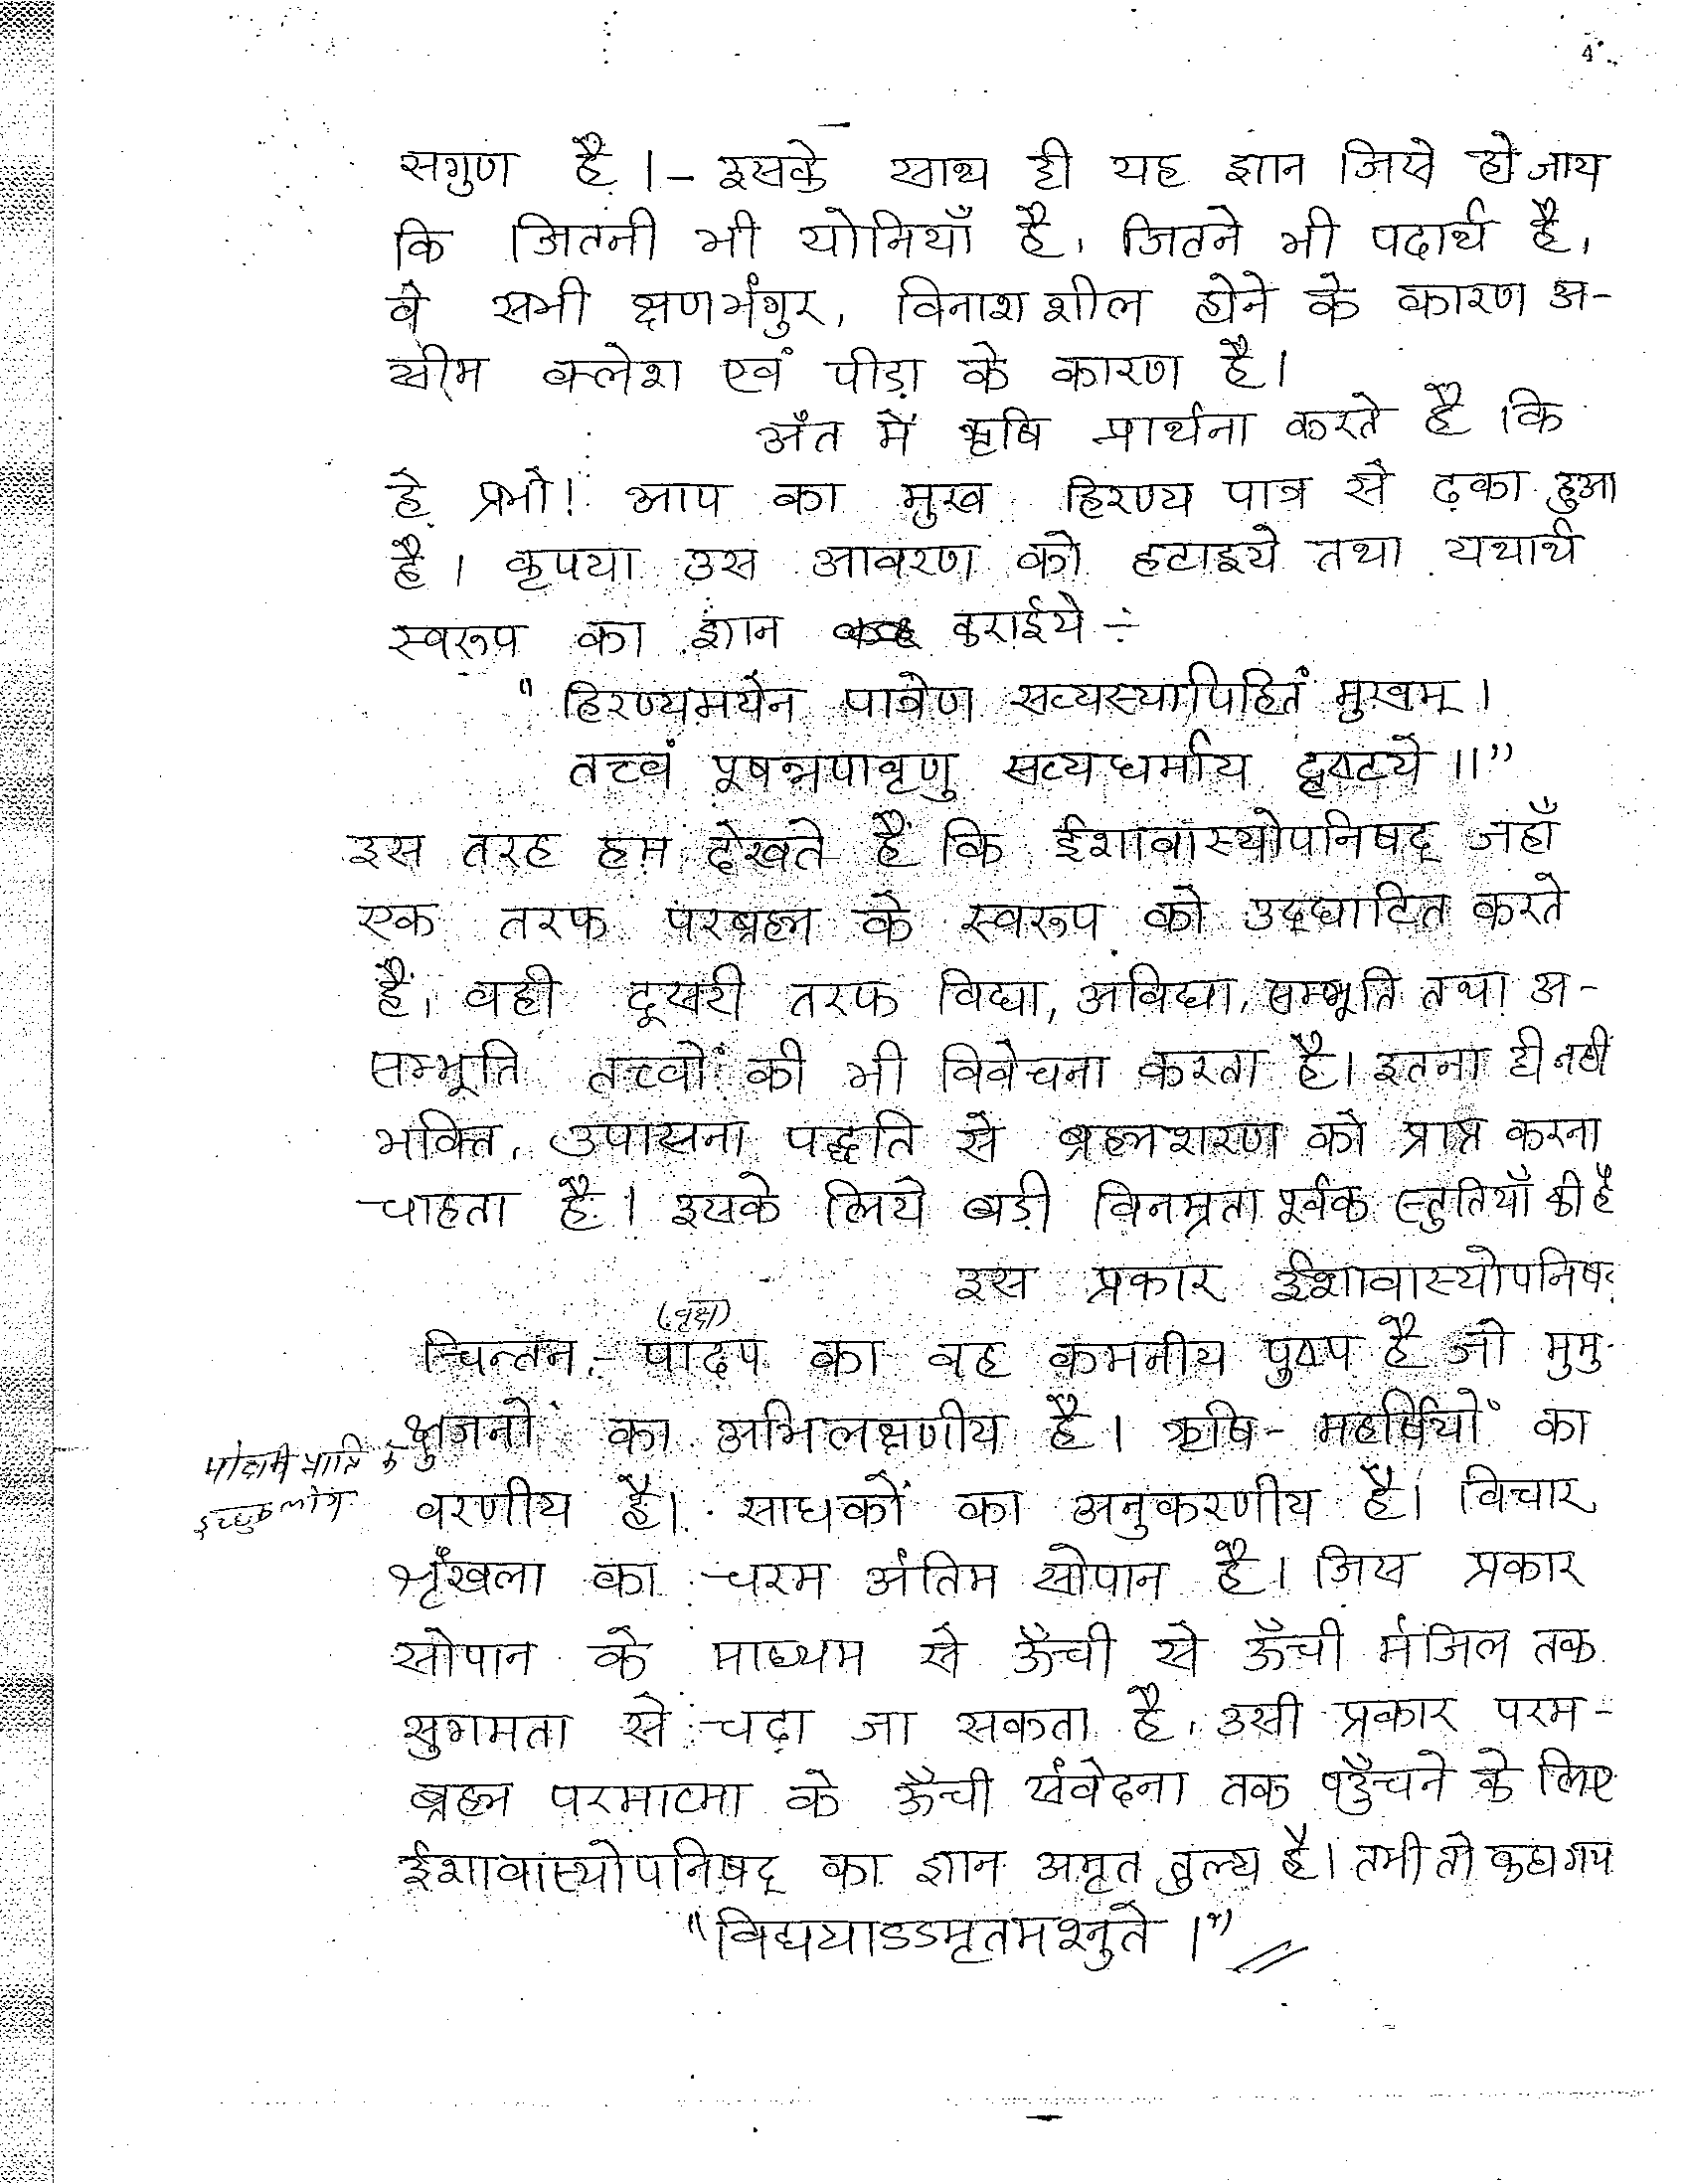 4
सगुण है ।- इसके साथ ही यह ज्ञान जिसे हो जाय
कि जितनी भी योनियाँ है, जितने भी पदार्थ है,
वे सभी क्षणभंगुर, विनाशशील होने के कारण अ-
सीम क्लेश एवं पीड़ा के कारण है।
अंत में ऋषि प्रार्थना करते है कि
हे प्रभो! आप का मुख हिरण्य पात्र से ढ़का हुआ
है। कृपया उस आवरण को हटाइये तथा यथार्थ
स्वरूप का ज्ञान कराईये ÷
"हिरण्यमयेन पात्रेण सत्यस्यापिहितं मुखम्।
तत्त्वं पूषन्नपावृणु सत्यधर्माय दृष्टये ॥"
इस तरह हम देखते हैं कि ईशावास्योपनिषद् जहाँ
एक तरफ परब्रह्म के स्वरूप को उद्घाटित करते
हैं, वही दूसरी तरफ विद्या, अविद्या, सम्भूति तथा अ-
सम्भूति तत्त्वों की भी विवेचना करता है। इतना ही नही
भक्ति, उपासना पद्धति से ब्रह्मशरण को प्राप्त करना
चाहता है। इसके लिये बड़ी विनम्रता पूर्वक स्तुतियाँ की है
इस प्रकार ईशावास्योपनिषद
(वृक्ष)
चिन्तन - पादप का वह कमनीय पुष्प है जो मुमु-
क्षुजनों का अभिलक्षणीय है। ऋषि - महर्षियों का
मोक्षकी प्राप्ति के
इच्छुक लोग
वरणीय है। साधकों का अनुकरणीय है। विचार
श्रृंखला का चरम अंतिम सोपान है। जिस प्रकार
सोपान के माध्यम से ऊँची से ऊँची मंजिल तक
सुगमता से चढ़ा जा सकता है, उसी प्रकार परम-
ब्रह्म परमात्मा के ऊँची संवेदना तक पहुँचने के लिए
ईशावास्योपनिषद् का ज्ञान अमृत तुल्य है। तभी तो कहा गय
"विद्ययाऽऽमृतमश्नुते ।"